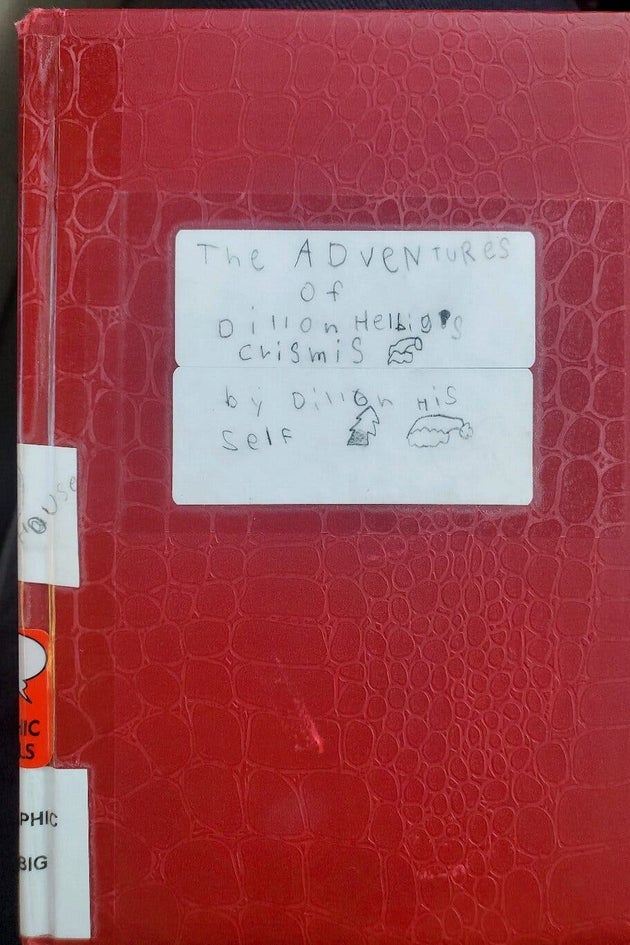 The ADVENTURES
Of
Dillon Helbig's
crismis
by Dillon His
self
House
HIC
LS
PHIC
BIG